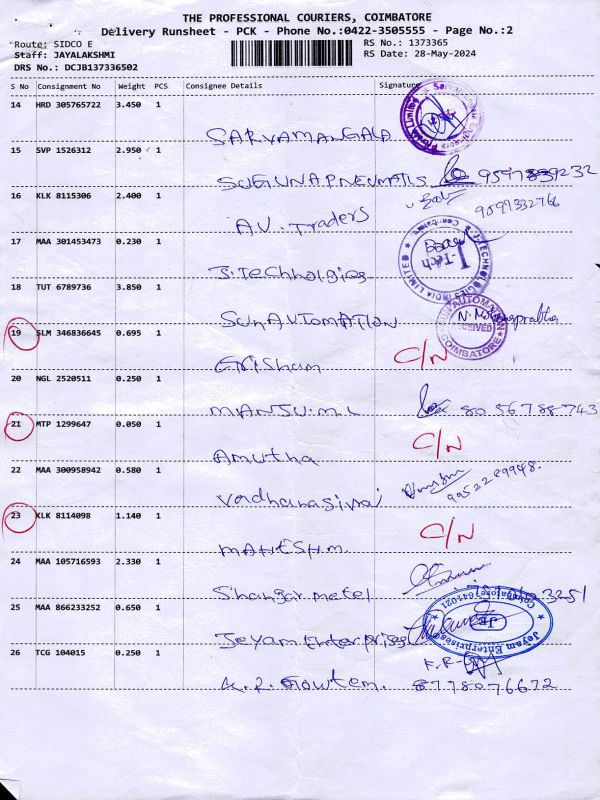 THE PROFESSIONAL COURIERS, COIMBATORE
Delivery Runsheet - PCK - Phone No.:0422-3505555 - Page No.:2
Route: SIDCO E
RS No.: 1373365
Staff: JAYALAKSHMI
RS Date: 28-May-2024
DRS No.: DCJB137336502
S No Consignment No Weight PCS Consignee Details Signature
14 HRD 305765722 3.450 1
SARVAMANGALA
15 SVP 1526312 2.950 1
SUGUNAPNEUMATIS
16 KLK 8115306 2.400 1
A.V. Traders 9597332766
17 MAA 301453473 0.230 1
J.Technolgies
J-Tech
18 TUT 6789736 3.850 1
SUNAUTOMATION
SUN AUTOMATION RECEIVED COIMBATORE
19 SLM 346836645 0.695 1
C/N
Grisham
20 NGL 2520511 0.250 1
MANJU.M.L 8056788743
21 MTP 1299647 0.050 1
C/N
Amutha
22 MAA 300958942 0.580 1
Vadhanasivai
23 KLK 8114098 1.140 1
C/N
MAHESH.M.
24 MAA 105716593 2.330 1
Shangar metel 3251
25 MAA 866233252 0.650 1
Jeyam Enterprises
Jeyam Enterprises JE Coimbatore-641021
26 TCG 104015 0.250 1
K.R. Gowtem. 8778076672